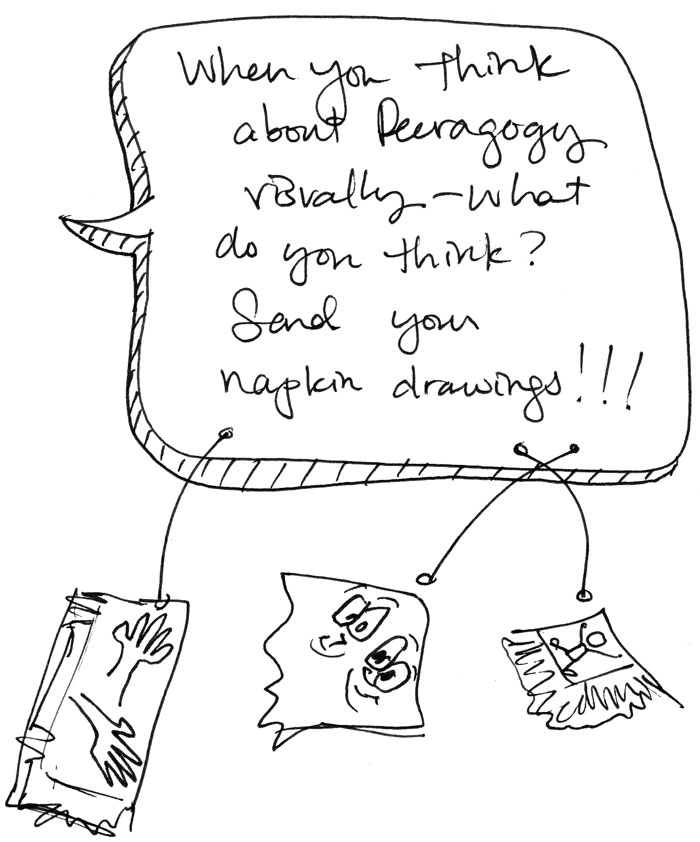 When you think
about Peeragogy
visually - what
do you think?
Send your
napkin drawings!!!